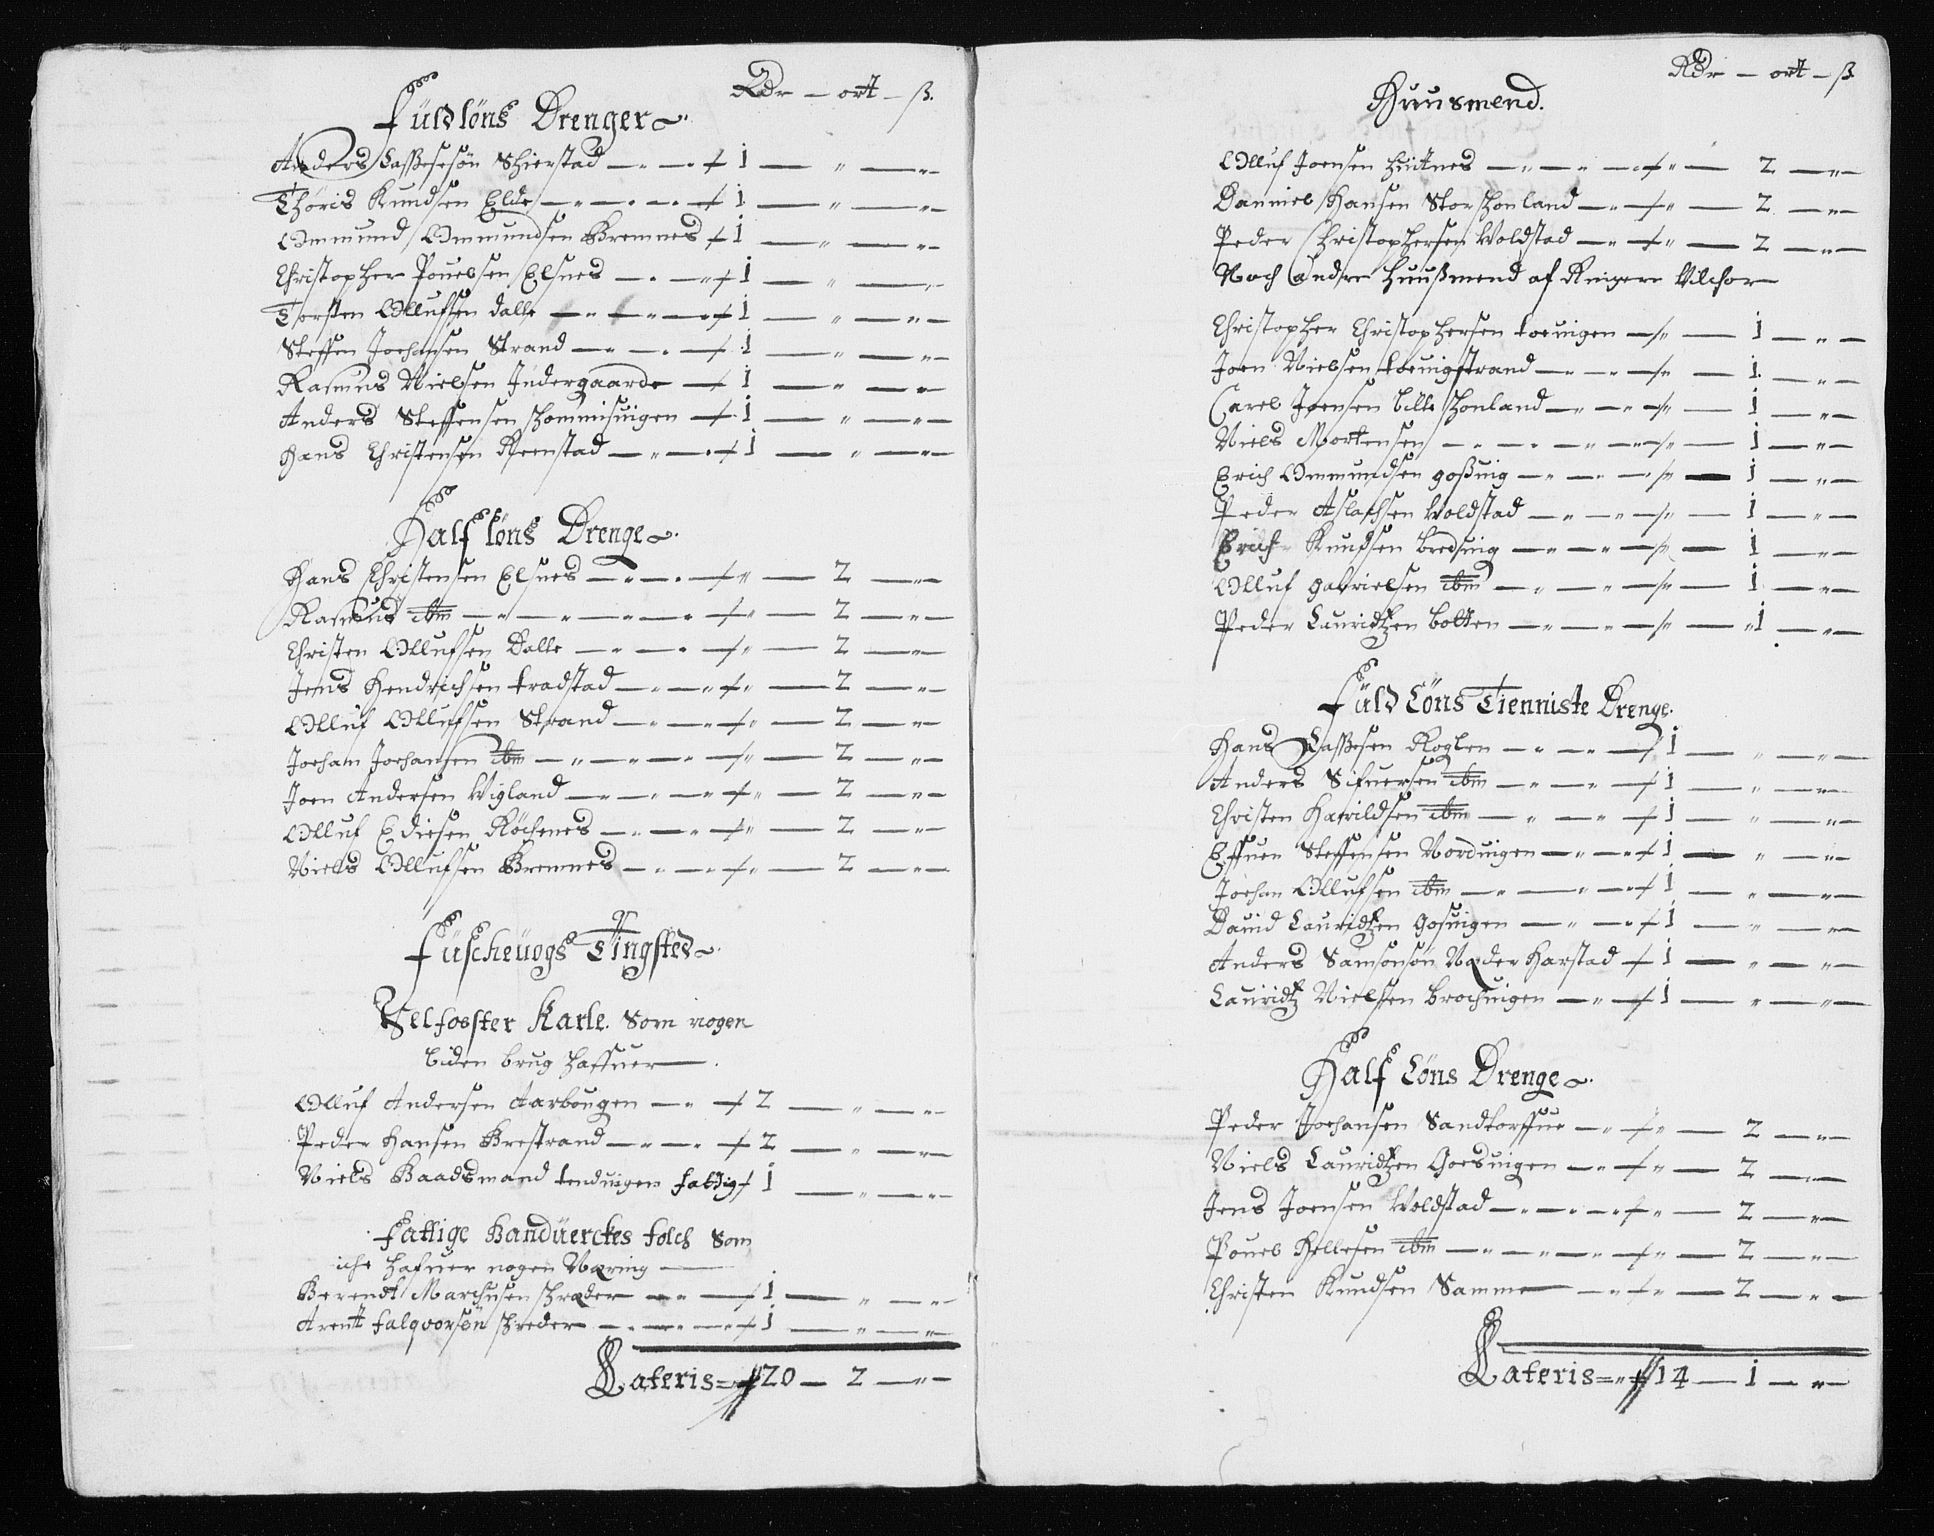 Rdr – ort – ß.
Füldlöns Drenger
Anders Lassesøn Skierstad — 1 — " — "
Thøris Knudsen Elde — 1 — " — "
Ommund Ommundsen Bremnes 1 — " — "
Christopher Pouelsen Elsnes — 1 — " — "
Torsten Ollufsen dalle — 1 — " — "
Steffen Joehansen Strand — 1 — " — "
Rasmus Nielsen Indergaarde — 1 — " — "
Anders Steffensen 1 — " — "
Hans Christensen Reenstad — 1 — " — "
Half löns Drenge
Hans Christensen Elsnes — " — 2 — "
Rasmus ibm — " — 2 — "
Christen Ollufsen Dalle — " — 2 — "
Jens Hendrichsen tradstad — " — 2 — "
Olluf Ollufsen Strand — " — 2 — "
Joehan Joehansen ibm — " — 2 — "
Joen Andersen Wigland — " — 2 — "
Olluf Ediesen Röchenes — " — 2 — "
Niels Ollufsen Bremnes — " — 2 — "
Füscheuogs Tingsted
Selfoster Karle. Som nogen
liden brug haffuer
Olluf Andersen Aarbougen — 2 — " — "
Peder Hansen Brestrand — 2 — " — "
Niels Baadsmand tenduigen fattig 1 — " — "
Fattige Handüerckes folch Som
iche hafuer nogen Næring
Berendt Marchusen schræder — 1 — " — "
Arent falqvorsön schreder — 1 — " — "
Lateris = 20 — 2 — "
Rdr – ort – ß
Huusmend.
Olluf Joensen — " — 2 — "
Daniel Hansen Storhonland — " — 2 — "
Peder Christophersen Woldstad — " — 2 — "
Noch andre Huußmend af Ringere Vilchor
Christopher Christophersen toeuigen — " — 1 — "
Joen Nielsen toeuigstrand — " — 1 — "
Carel Joensen lille honland — " — 1 — "
Niels Mortensen — " — 1 — "
Erich Ommundsen goßuig — " — 1 — "
Peder Aslachsen Woldstad — " — 1 — "
Erich Knudsen bredüig — " — 1 — "
Olluf Gabrielsen ibm — " — 1 — "
Peder Lauridtzen bolten — " — 1 — "
Füld Löns Tienniste Drenge.
Hans Lassesen Roglen — 1 — " — "
Anders Sifuersen ibm — 1 — " — "
Christen Harildsen ibm — 1 — " — "
Effuen Steffensen Norduigen — 1 — " — "
Joehan Ollufsen ibm — 1 — " — "
Dauid Lauridtzen Gosuigen — 1 — " — "
Anders Samsonsön Næder Harstad 1 — " — "
Lauridtz Nielsen brochuigen — 1 — " — "
Half Löns Drenge
Peder Joehansen Sandtorffue — " — 2 — "
Niels Lauridtzen Goesuigen — " — 2 — "
Jens Joensen Woldstad — " — 2 — "
Pouel Hellesen ibm — " — 2 — "
Christen Knudsen Samme — " — 2 — "
Lateris = 14 — 1 — "